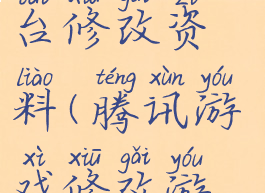 台修改资
liào téng xùn yóu
料(腾讯游
xì xiū gǎi yóu
戏修改游